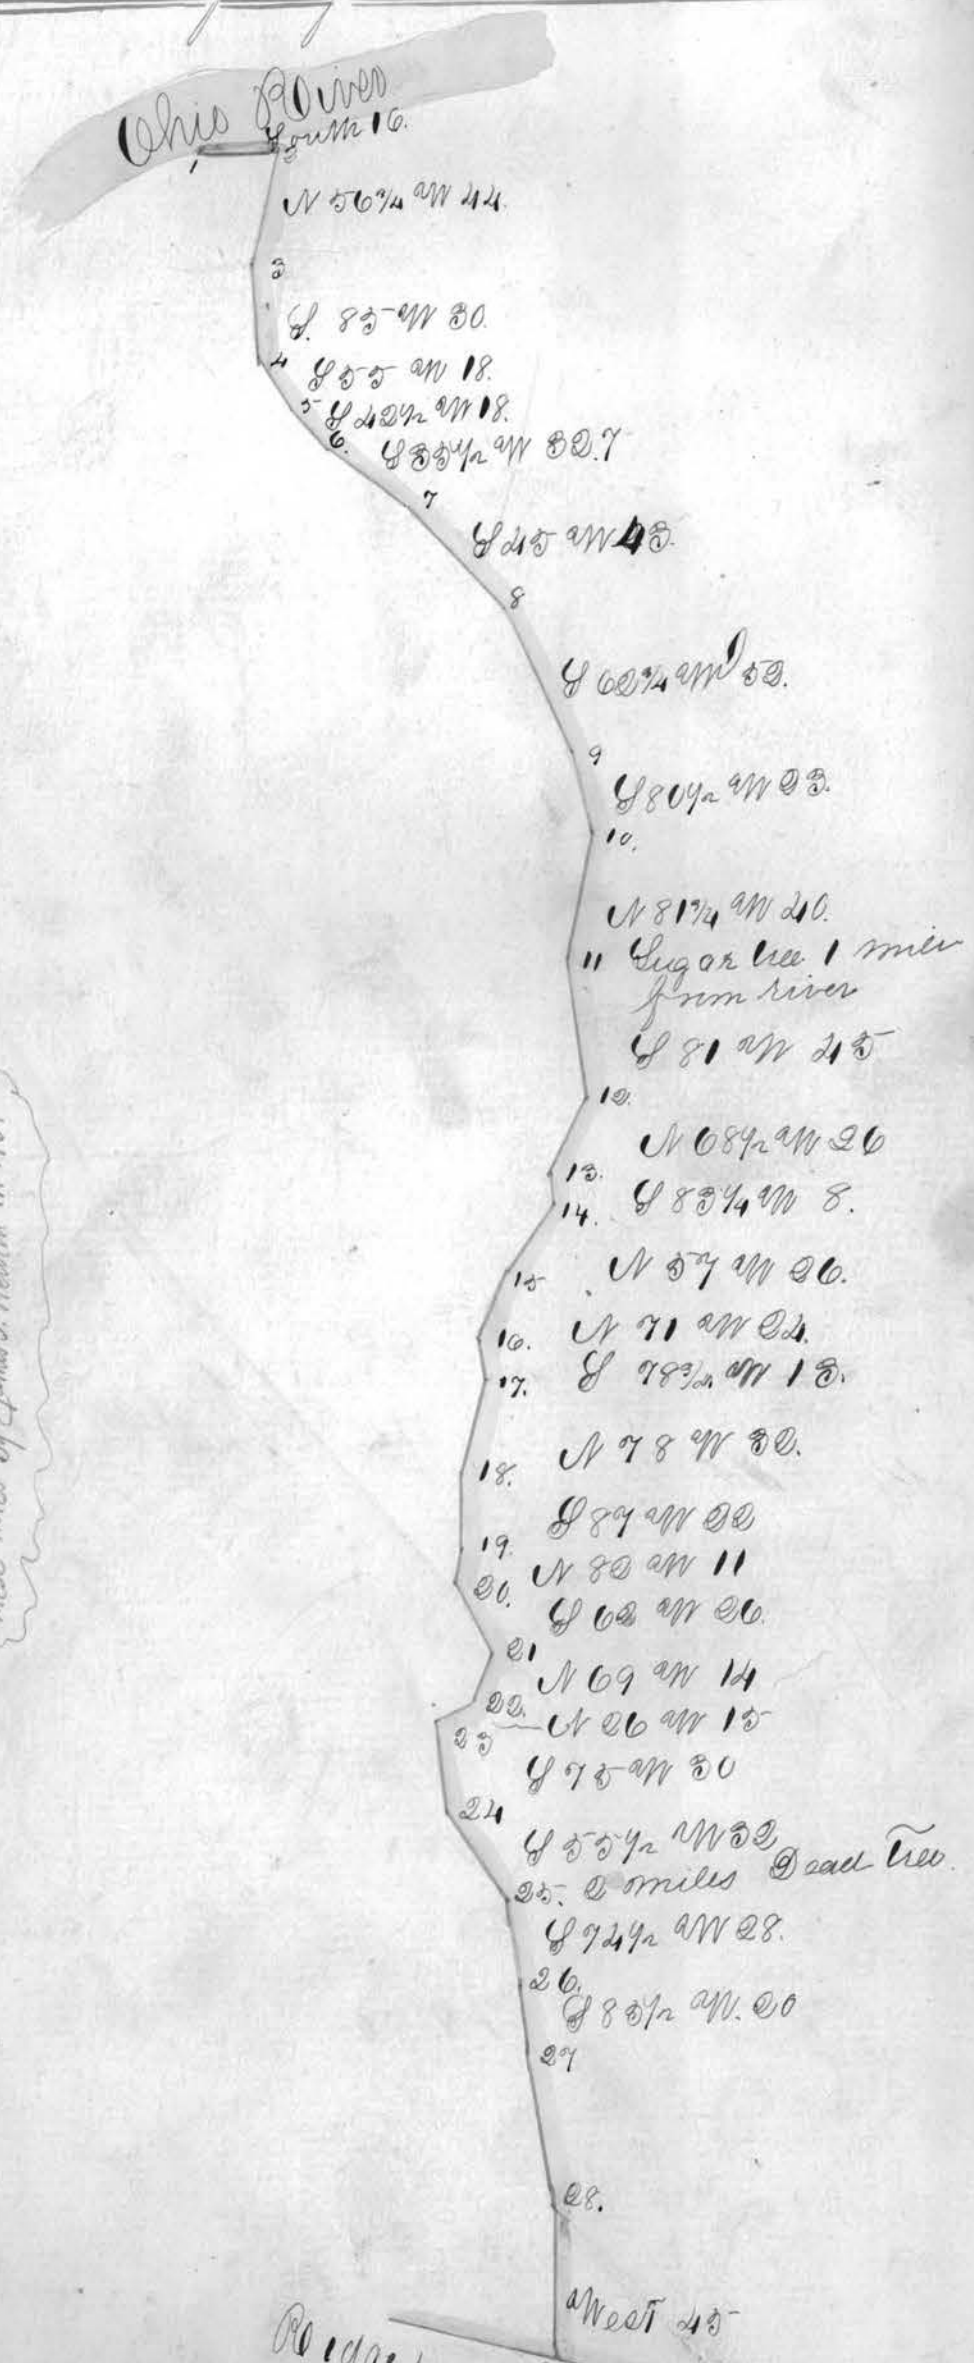 Ohio River
South 16.
1
2
N 56 3/4 W 44.
3
S. 85 W 30.
4
S 55 W 18.
5
S 42 1/2 W 18.
6.
S 35 1/2 W 32.7
7
S 45 W 43.
8
S 62 3/4 W 52.
9
S 80 1/2 W 23.
10.
N 81 3/4 W 40.
11 Sugar tree 1 mile
from river
S 81 W 45
12.
N 68 1/2 W 26
13.
S 83 1/4 W 8.
14.
N 57 W 26.
15
N 71 W 24.
16.
S 78 3/4 W 13.
17.
N 78 W 32.
18.
S 87 W 22
19.
N 82 W 11
20.
S 62 W 26.
21
N 69 W 14
22.
N 26 W 15
23
S 75 W 30
24
S 55 1/2 W 32
25. 2 miles Dead Tree.
S 74 1/2 W 28.
26.
S 83 1/2 W. 20
27
28.
West 45